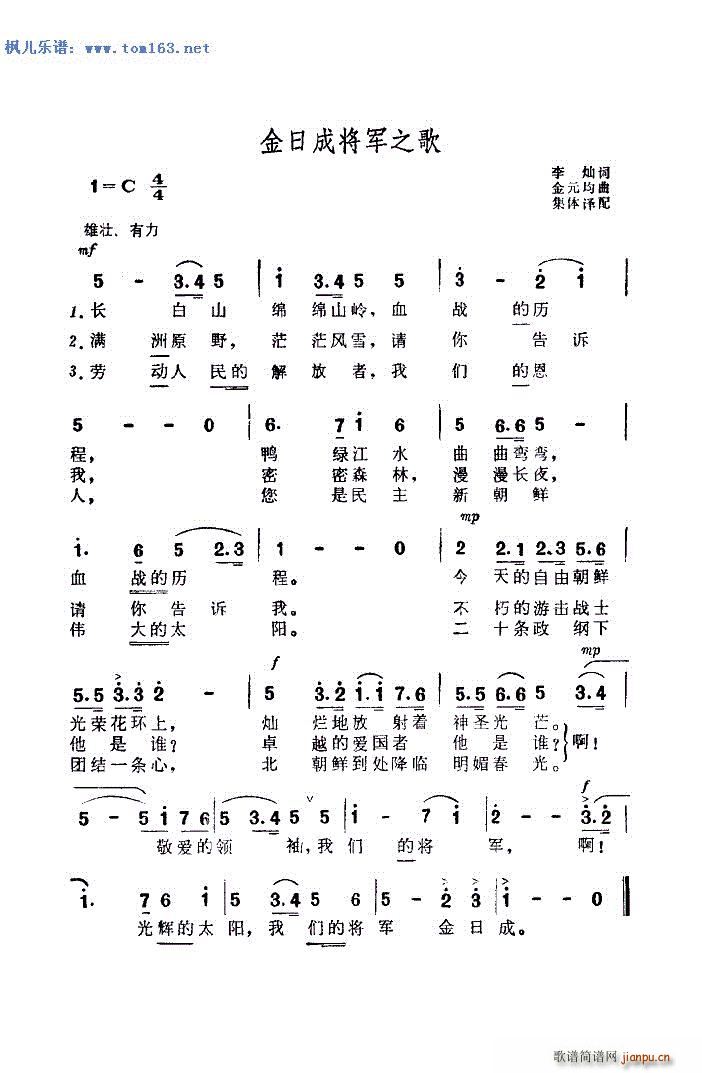 枫儿乐谱：www.tom163.net
金日成将军之歌
1=C 4/4
李 灿词
金元均曲
集体译配
雄壮、有力
mf
5 - 3.4 5 | i 3.4 5 5 | 3 - 2 i |
1.长 白山 绵绵山岭，血 战 的历
2.满 洲原野，茫茫风雪，请 你 告诉
3.劳 动人民的 解放者，我 们 的恩
5 - - 0 | 6. 7 i 6 | 5 6.6 5 - |
程， 鸭 绿江水 曲曲弯弯，
我， 密 密森林，漫漫长夜，
人， 您 是民主 新朝鲜
mp
i. 6 5 2.3 | 1 - - 0 | 2 2.1 2.3 5.6 |
血 战的历 程。 今天的自由朝鲜
请 你告诉 我。 不朽的游击战士
伟 大的太 阳。 二十条政纲下
f mp
5.5 3.3 2 - | 5 3.2 i.i 7.6 | 5.5 6.6 5 3.4 |
光荣花环上， 灿烂地放射着 神圣光芒。
他是谁？ 卓越的爱国者 他是谁？ 啊！
团结一条心， 北朝鲜到处降临 明媚春光。
f
5 - 5 i 7 6 | 5 3.4 5 5 | i - 7 i | 2 - - 3.2 |
敬爱的领 袖，我们 的将 军， 啊！
i. 7 6 i | 5 3.4 5 6 | 5 - 2 - | i - - 0 ‖
光辉的太阳，我们的将军 金日成。
歌谱简谱网 jianpu.cn